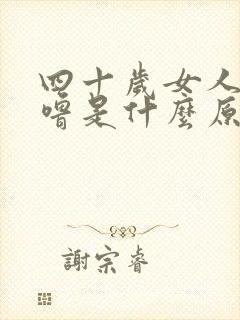 四十歲女人
嚕是什麼原
謝宗睿